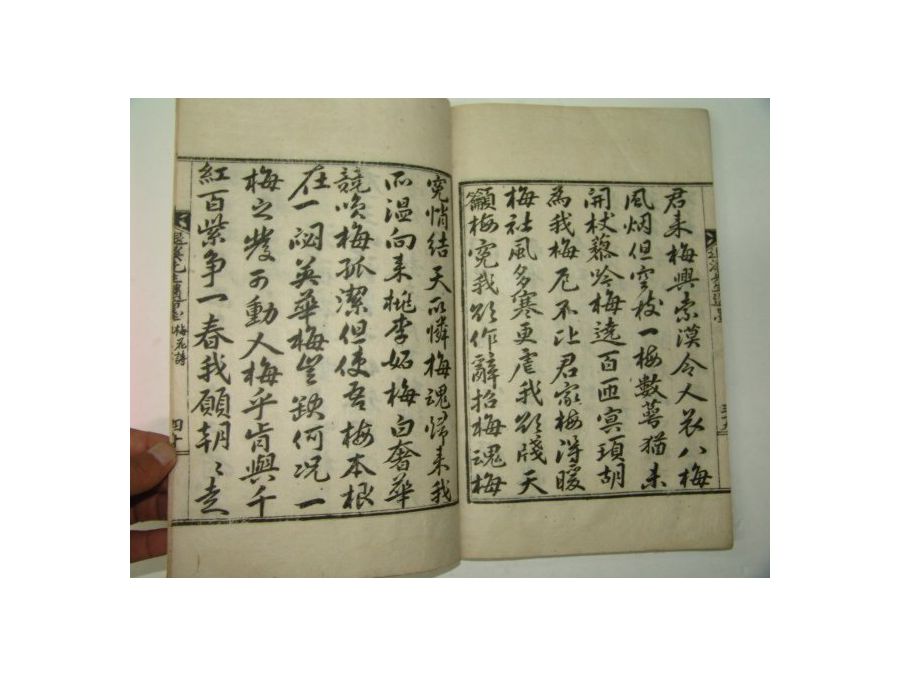 君来梅興索漠令人哀八梅
風烟但空枝一梅數萼猶未
開杖藜吟梅遶百匝冥頊胡
為我梅厄不比君家梅得暖
梅社風多寒更虐我欲牋天
籲梅冤我欲作辭招梅魂梅
冤悄結天所憐梅魂歸来我
所温向来桃李妬梅白奢華
競喚梅孤潔但使吾梅本根
在一閟英華梅豈缺何况一
梅之發可動人梅乎肯與千
紅百紫争一春我願朝〻走
梅花詩
四十